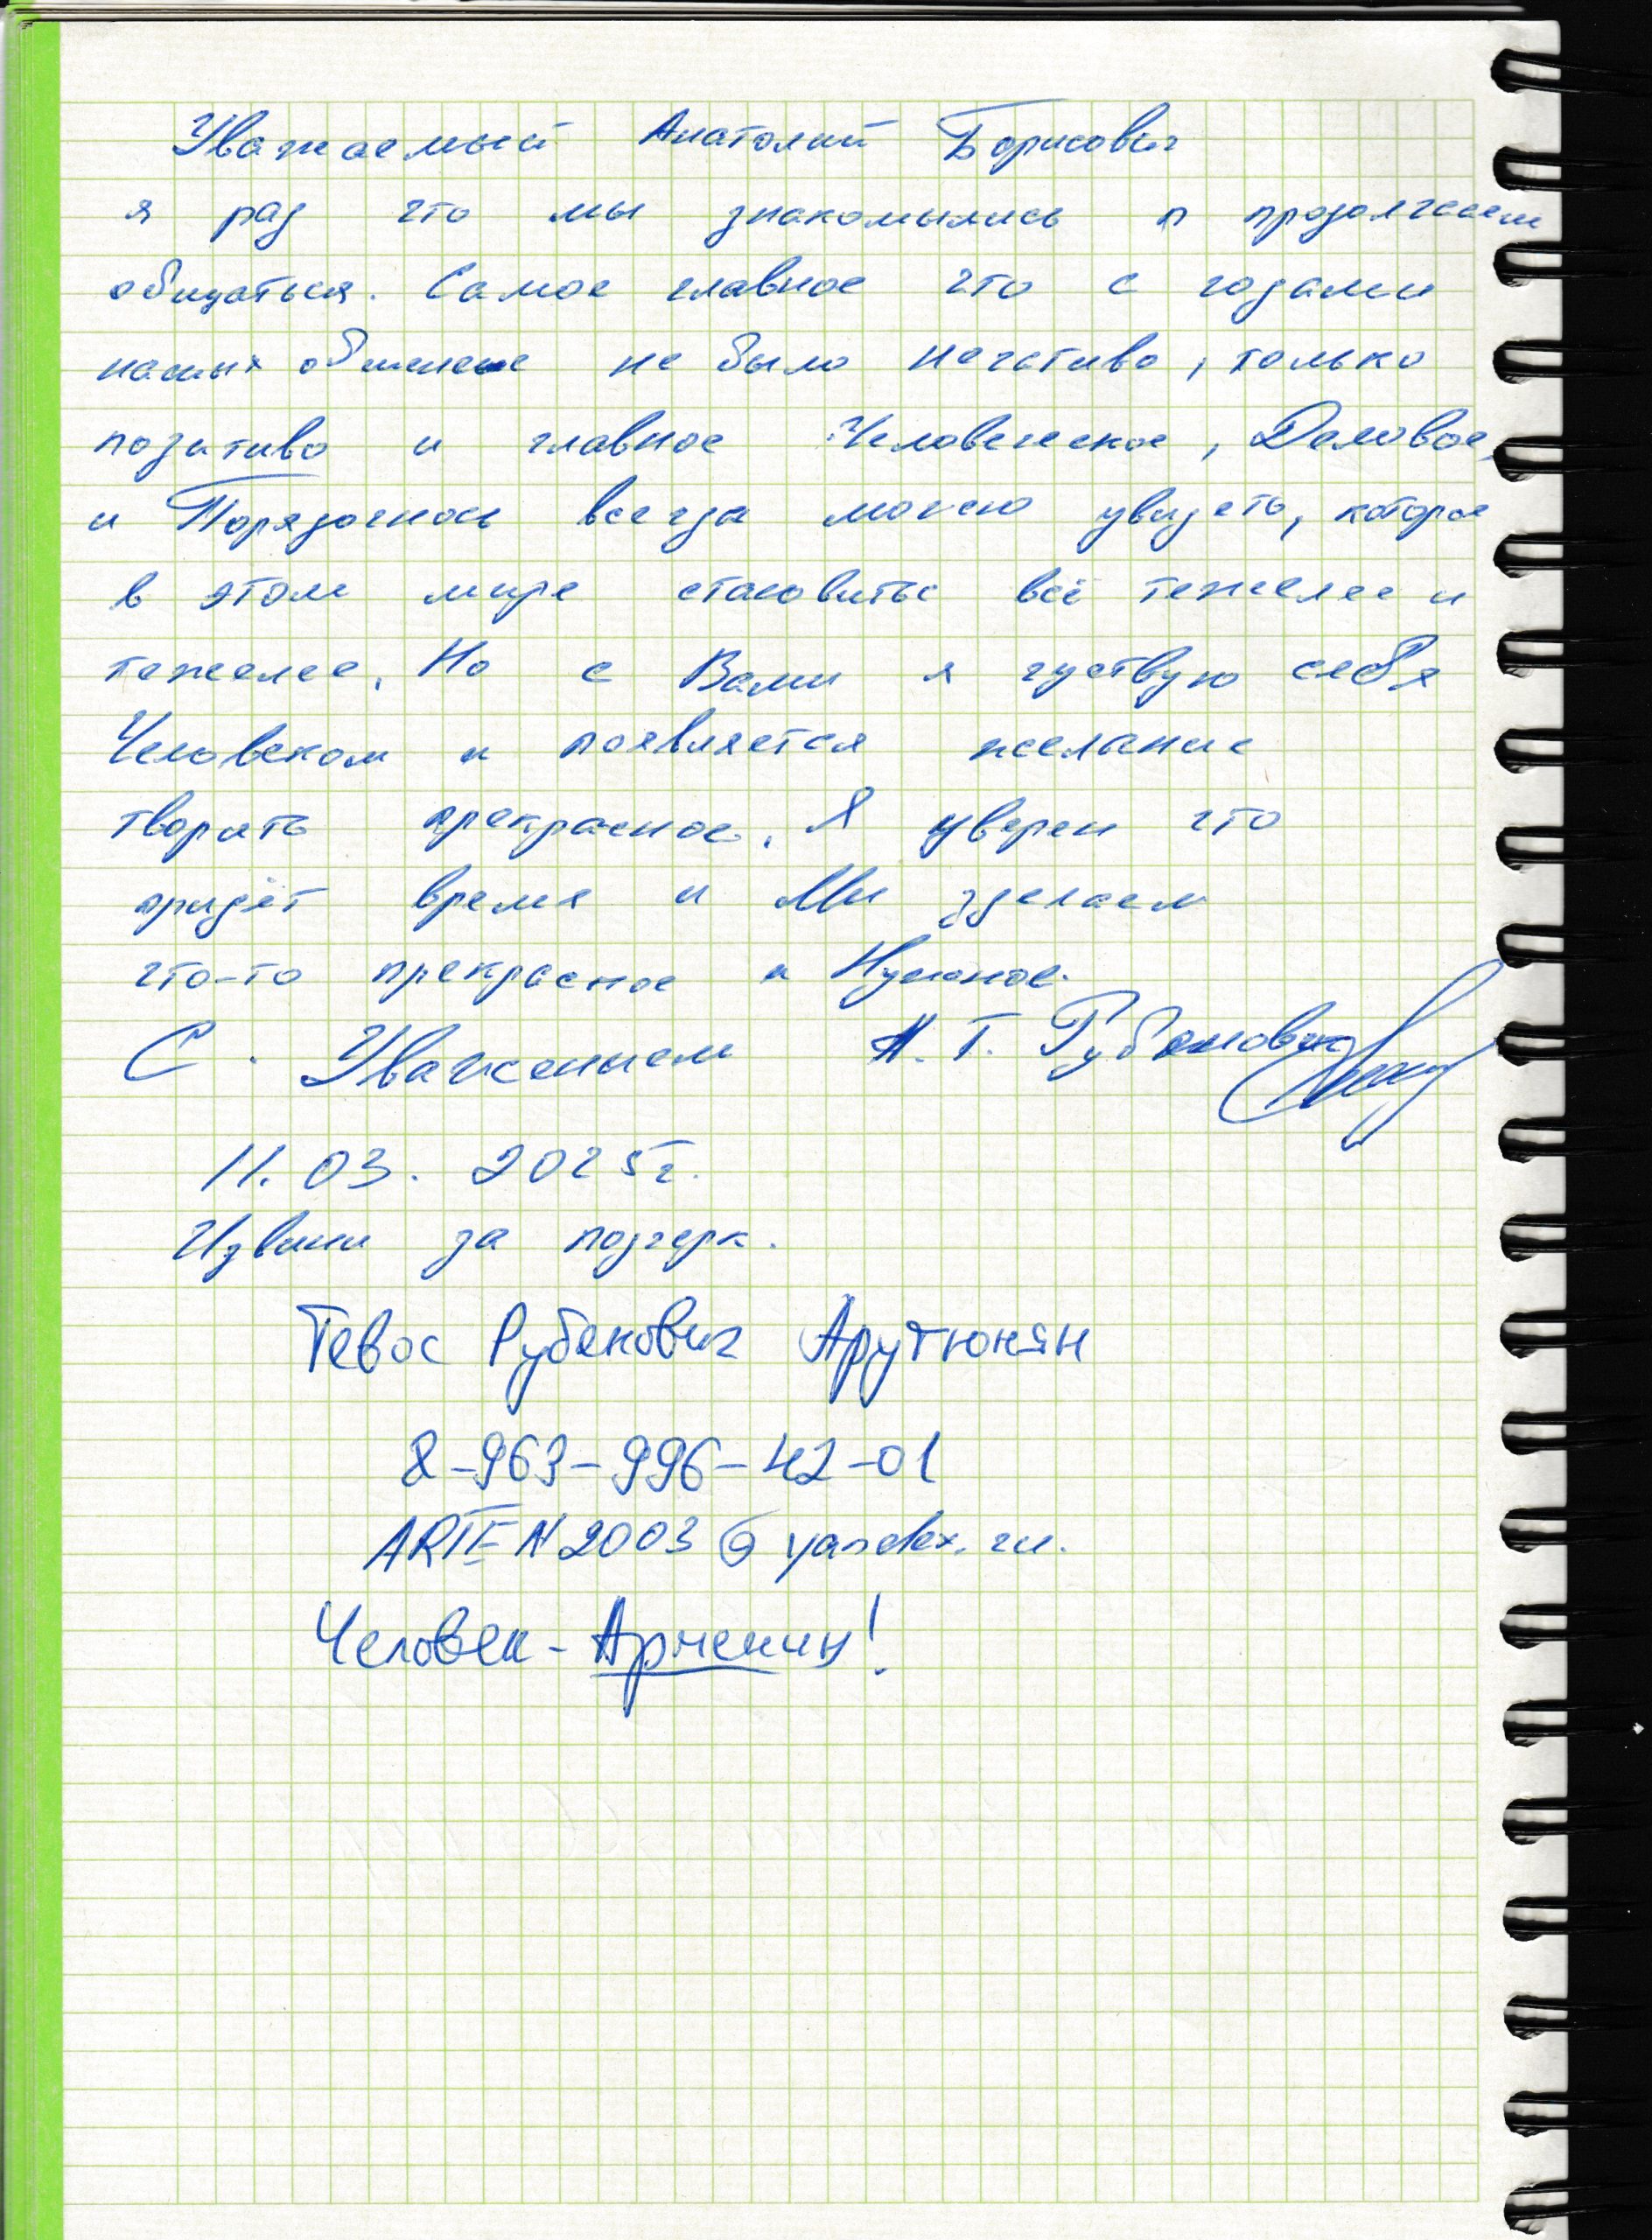 Уважаемый Анатолий Борисович
я рад что мы знакомылись и продолжаем
общаться. Самое главное что с годами
наших общение не было негативо, только
позитиво и главное Человеческое, Деловое,
и Порядочнось всегда можно увидеть, которое
в этом мире становитьс всё тежелее и
тежелее. Но с Вами я чуствую себя
Человеком и появляется желание
творить прекрасное. Я уверен что
придёт время и Мы зделаем
что-то прекрасное и Нужное.
С. Уважением А. Т. Рубенович
11.03. 2025г.
Извини за подчерк.
Тевос Рубенович Арутюнян
8-963-996-42-01
ARTEN2003@yandex.ru.
Человек - Арменин!